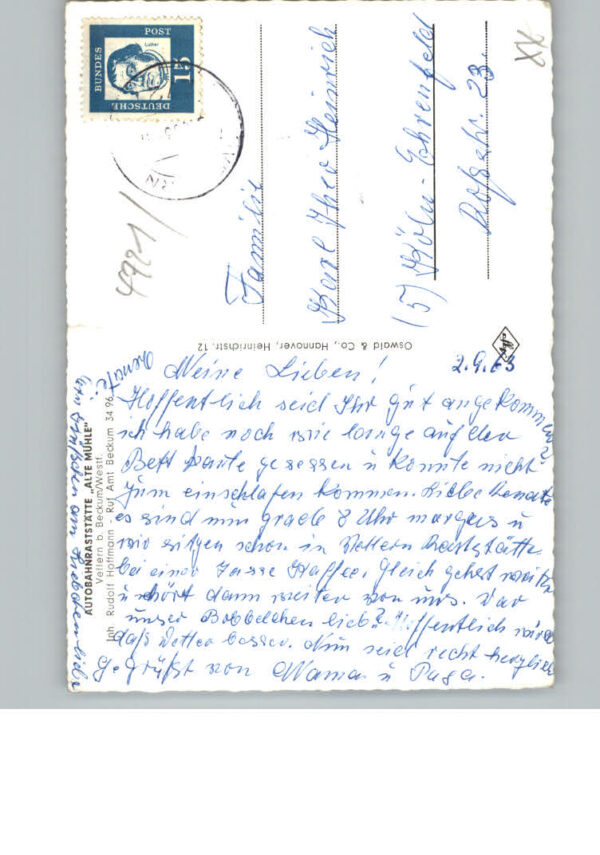 BUNDES
POST
Luther
15
DEUTSCHE
Familie
Karl Theo Heinrich
(5) Köln-Ehrenfeld
23
4721/
Oswald & Co., Hannover, Heinrichstr. 12
2.9.63
Meine Lieben!
Hoffentlich seid Ihr gut angekommen
ich habe noch wie lange auf der
Bett kante gesessen u konnte nicht
zum einschlafen kommen. Liebe Renate
es sind nun grade 8 Uhr morgens u
wir sitzen schon in Vettern Raststätte
bei einer Tasse Kaffee. Gleich gehts weiter
u hört dann weiter von uns. War
unser Bobbelchen lieb? Hoffentlich wird
daß Wetter besser. Nun seid recht herzlich
gegrüßt von Mama u Papa.
AUTOBAHNRASTSTÄTTE „ALTE MÜHLE"
Vellern b. Beckum/Westf.
Inh. Rudolf Hoffmann · Ruf Amt Beckum 34 96